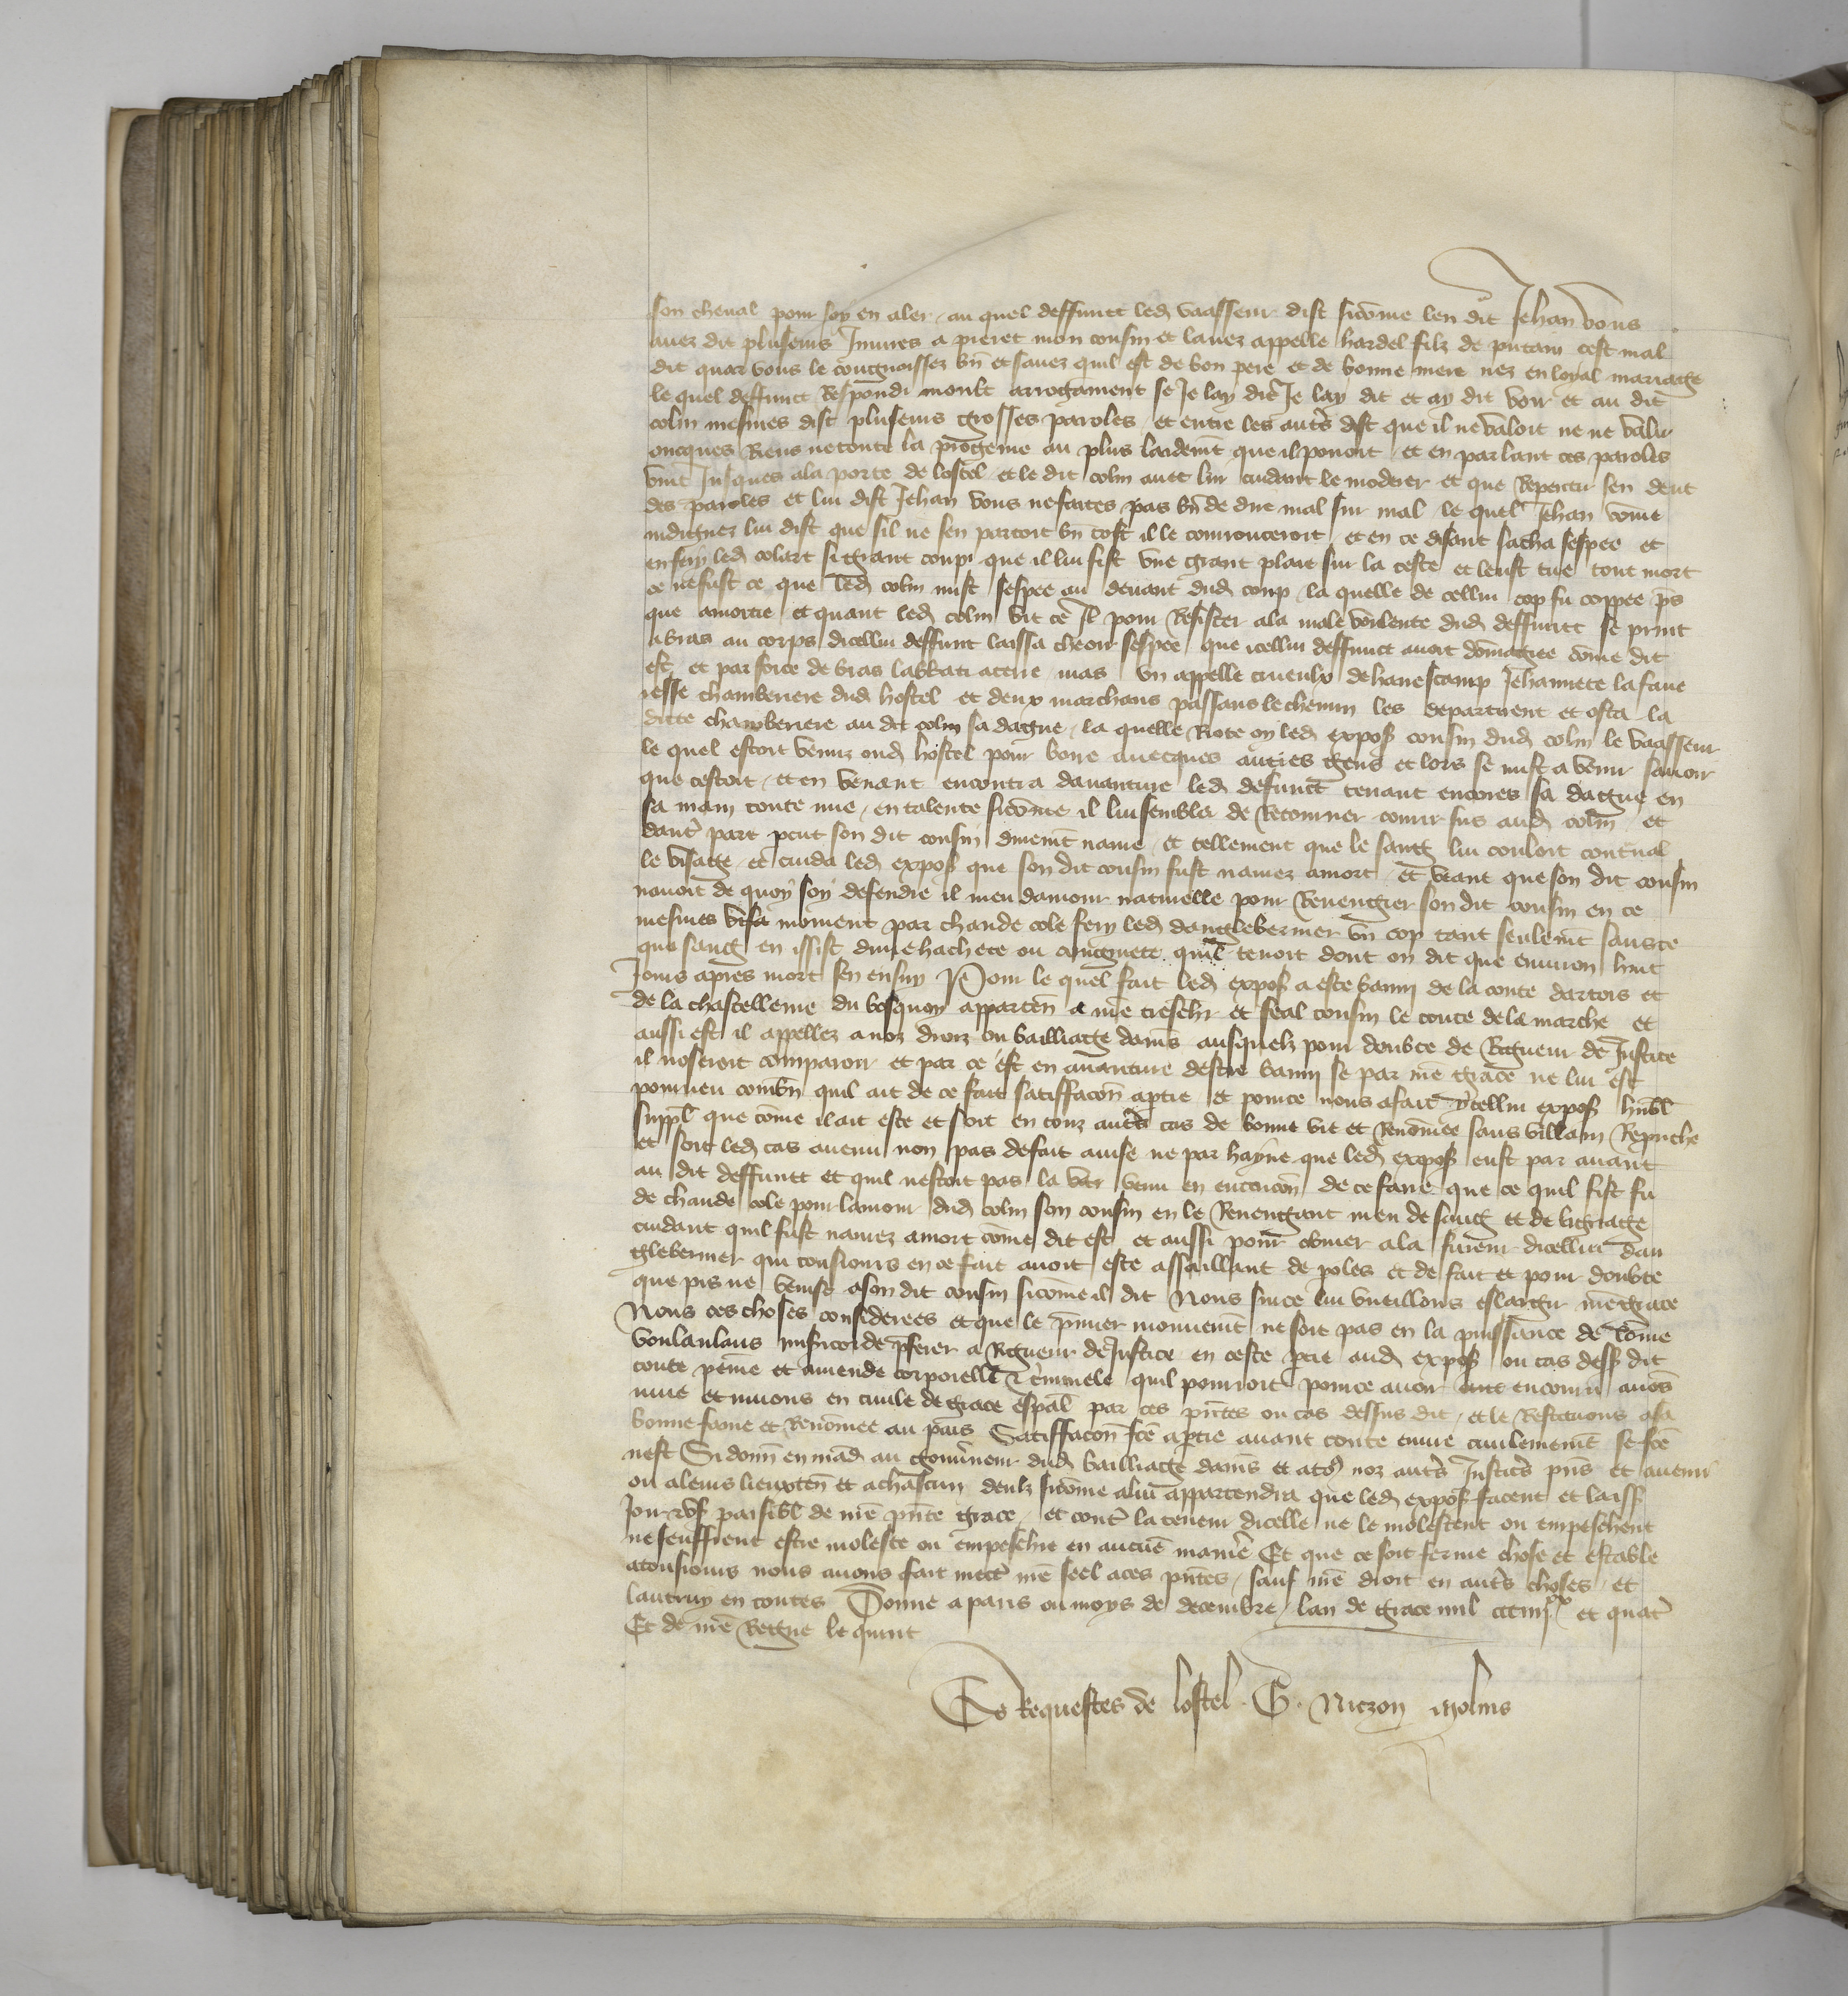 son cheual pour soy en aler / au quel deffunct led vaasseur dist sicōme len dit Jehan vous
auez dit pluseurs Iniures a pieret mon cousin et lauez appelle hardel filz de putain cest mal
dit quar vous le congnoissez bn̄ et sauez quil est de bon pere et de bonne mere nez en loyal mariage
le quel deffunct Respondi moult arrogament se Je lay dit Je lay dit et ay dit voir et au dit
colin mesmes dist pluseurs grosses paroles / et entre les aut̄s dist que il ne valoit ne ne valu
oncques Riens ne toute la progenie au plus laidem̄t que il pouoit / et en parlant ces paroles
vint Jusques ala porte de lostel et le dit colin auec lui cuidant le moderer et que Repentir sen deut
des paroles et lui dist Jehan vous ne faites pas bn̄ de dire mal sur mal le quel Jehan cōme
indignez lui dist que sil ne sen partoit bn̄ tost il le courrouceroit et en ce disant sacha sespee et
en fery led colart si grant coup que il lui fist vne grant plaie sur la teste et leust tue tout mort
ce ne fust ce que led colin mist sespee au deuant dud coup / la quelle de cellui cop fu coppee pͣs
que amortie et quant led colin vit ce Il pour Resister ala male voulente dud deffunct se print
a bras au corps dicellui deffunct laissa cheoir sespee que icellui deffunct auoit dōmagiee cōme dit
est et par force de bras labbati aterre mais vn appelle creuleux de hanescamp Jehannete la faue
resse chamberiere dud hostel et deux marchans passans le chemin les departirent et osta la
ditte chamberiere au dit colin sa dague / la quelle Riote oy led expos̄ cousin dud colin le vaasseur
le quel estoit venuz oud hostel pour boire auecques autres gens et lors se mist a venir sauoir
que cestoit / et en venant encontra dauanture led defunct tenant encores sa dague en
sa main toute nue / en talente sicōme il lui sembla de Retourner courir sus aud colin / et
daut̄ part vit son dit cousin durem̄t naure / et tellement que le sang lui couloit contreual
le visage / et cuida led expos̄ que son dit cousin fust naurez amort / Et veant que son dit cousin
nauoit de quoy soy defendre il meu damour naturelle pour Reuengier son dit cousin en ce
mesmes moment par chaude cole fery led danglebermer vn cop tant seulem̄t sans ce
que sang en issist dune hachete ou quil tenoit dont on dit que enuiron huit
Jours apres mort sen ensuy Pour le quel fait led expos̄ a este banny de la conte dartois et
de la chastellenie du bosquoy apparten̄ a nr̄e treschr̄ et feal cousin le conte de la marche et
aussi est il appellez a noz droiz ou bailliage damiēs ausquelz pour doubte de Rigueur de Justice
il noseroit comparoir et par ce est en auanture destre banny se par nr̄e grace ne lui est
pourueu combn̄ quil ait de ce fait satiffacōn apartie et pource nous a fait Icellui expos̄ hūbl
suppl̄ que cōme il ait este et soit en touz aut̄s cas de bonne vie et Renōmee sans villain Reprche
et soit led cas auenu non pas de fait auise ne par hayne que led expos̄ eust par auant
au dit deffunct et quil nestoit pas la venu en entencōn de ce faire que ce quil fist fu
de chaude cole pour lamour dud colin son cousin en le Reuengant meu de sang et de lignage
cuidant quil fust naurez amort cōme dit est et aussi pour obuier ala fureur dicellui dan
glebermer qui tousiours en ce fait auoit este assaillant de poles et de fait et pour doubte
que pis ne venist ason dit cousin sicōme il dit Nous sur ce lui vueillons eslargir nr̄e grace
Nous ces choses considerees et que le pr̄mier mouuem̄t ne soit pas en la puissance de lōme
voulanlans mis̄icorde pferer a Rigueur de Justice en ceste ptie aud expos̄ ou cas dess̄ dit
toute peine et amende corporelle & criminele quil pourroit pource auoir encouru auōs
mue et muons en ciuile de grace esp̄al par ces pn̄tes ou cas dessus dit / et le Restituons asa
bonne fame et Renōmee au pais Satiffacōn fcē apartie auant toute euure ciuilement se fcē
nest Si donn̄ en mād au gouūneur dud bailliage damiēs et atoꝰ noz aut̄s Justic̄s pn̄s et auenir
ou aleurs lieuxten̄ et achascun deulx sicōme alui appartendra que led expos̄ facent et laiss̄
Jouir & vs̄ paisibl̄ de nr̄e pn̄te grace / et cont̄ la teneur dicelle ne le molestent ou empeschent
ne seuffrent estre moleste ou empeschie en aucune manie Et que ce soit ferme chose et estable
atousiours nous auons fait mett̄ nr̄e seel aces pn̄tes / sauf nr̄e droit en aut̄s choses / et
lautruy en toutes Donne a paris ou moys de decembre / lan de grace mil ccciiijˣˣ et quat̄
Et de nr̄e Regne le quint
Es Requestes de lostel . G . Niczon molins